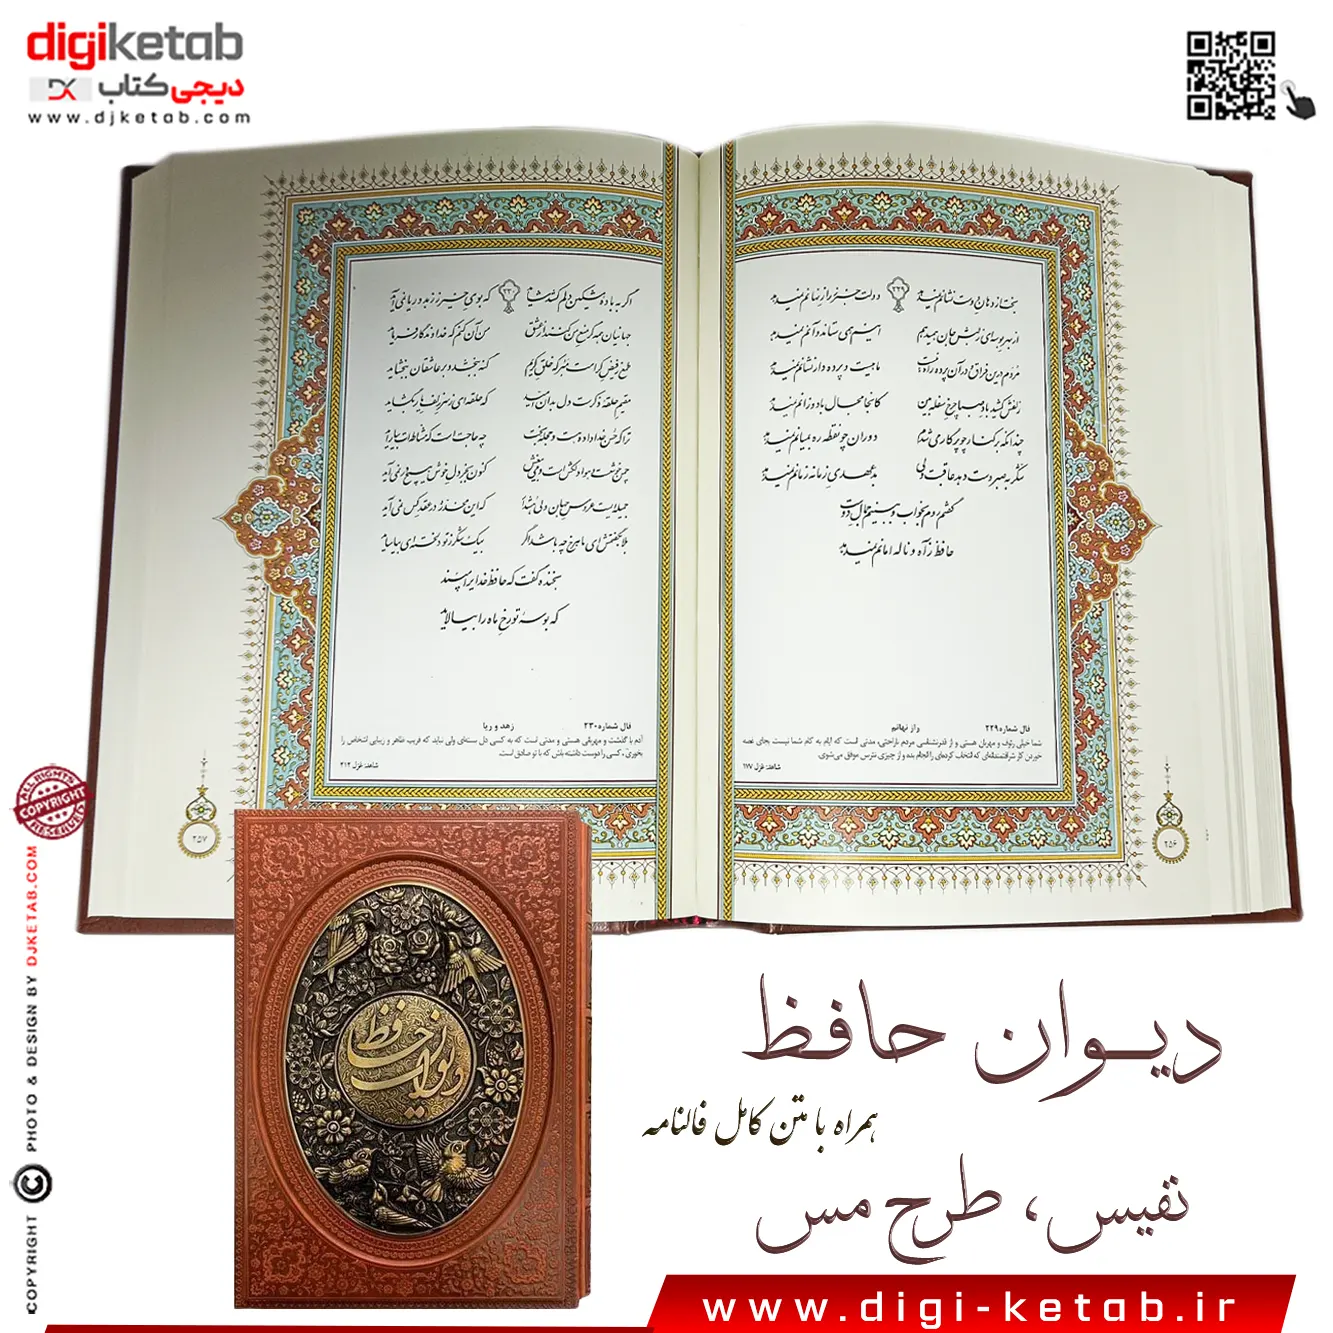 digiketab
دیجی کتاب DK
www.djketab.com
بخت از دهان دوست نشانم نمی‌دهد
دولت خبر ز راز نهانم نمی‌دهد
۲۲۹
از بهر بوسه‌ای ز لبش جان همی‌دهم
اینم همی ستاند و آنم نمی‌دهد
مردم درین فراق و در آن پرده راه نیست
یا هست و پرده دار نشانم نمی‌دهد
زلفش کشید باد صبا چرخ سفله بین
کانجا مجال باد وزانم نمی‌دهد
چندانکه بر کنار چو پرگار می‌شدم
دوران چو نقطه ره به میانم نمی‌دهد
شکر به صبر دست دهد عاقبت ولی
بد عهدی زمانه زمانم نمی‌دهد
گفتم روم به خواب و ببینم جمال دوست
حافظ ز آه و ناله امانم نمی‌دهد
فال شماره ۲۲۹ راز نهانم
شما خیلی رئوف و مهربان هستی و از قدرنشناسی مردم ناراحتی، مدتی است که ایام به کام شما نیست بجای غصه
خوردن کار شرافتمندانه‌ای که انتخاب کرده‌ای را انجام بده و از چیزی نترس موفق می‌شوی.
شاهد: غزل ۱۷۷
۲۵۶
اگر به باده مشکین دلم کشد شاید
که بوی خیر ز زهد و ریا نمی‌آید
۲۳۰
جهانیان همه گر منع من کنند از عشق
من آن کنم که خداوندگار فرماید
طمع ز فیض کرامت مبر که خلق کریم
گنه ببخشد و بر عاشقان ببخشاید
مقیم حلقه ذکر است دل بدان امید
که حلقه‌ای ز سر زلف یار بگشاید
ترا که حسن خداداده هست و حجله بخت
چه حاجت است که مشاطه‌ات بیاراید
چمن خوشست و هوا دلکش است و می بیغش
کنون بجز دل خوش هیچ در نمی‌آید
جمیله‌ایست عروس جهان ولی هشدار
که این مخدره در عقد کس نمی‌آید
بلابه گفتمش ای ماهرخ چه باشد اگر
بیک شکر ز تو دلخسته‌ای بیاساید
بخنده گفت که حافظ خدایرا مپسند
که بوسه تو رخ ماه را بیالاید
فال شماره ۲۳۰ زهد و ریا
آدم با گذشت و مهربانی هستی و مدتی است که به کسی دل بسته‌ای ولی نباید که فریب ظاهر و زیبایی اشخاص را
بخوری، کسی را دوست داشته باش که با تو صادق است.
شاهد: غزل ۲۱۲
۲۵۷
ALL RIGHTS
COPYRIGHT
RESERVED
COPYRIGHT © PHOTO & DESIGN BY DJKETAB.COM
دیوان حافظ
دیوان حافظ
همراه با متن کامل فالنامه
نفیس، طرح مس
www.digi-ketab.ir